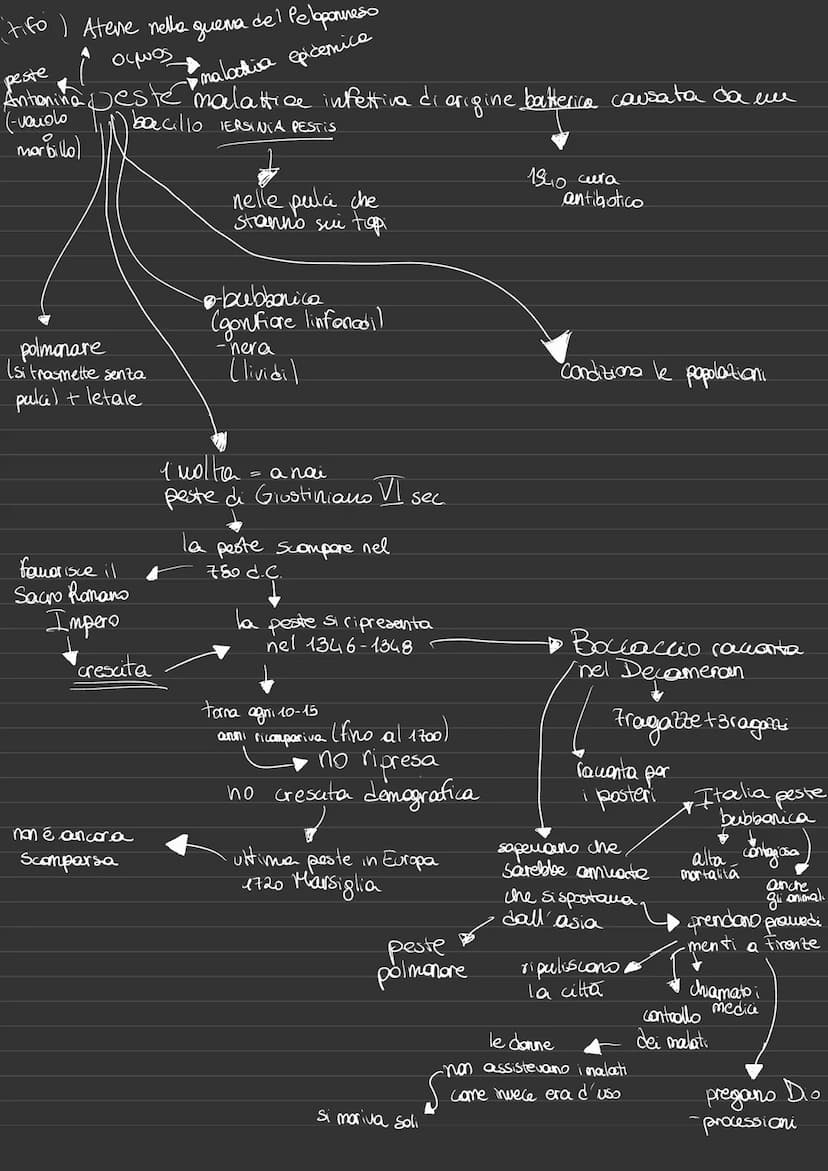 (tifo) Atene nella guerra del Peloponneso
malattia epidemica
peste
Antonina
(-vaiolo
o
morbillo)
peste malattia infettiva di origine batterica causata da un
bacillo IERSINIA PESTIS
nelle pulci che
stanno sui topi
1940 cura
antibotico
-bubbonica
(gonfiare linfonodi)
-nera
(lividi)
polmonare
(si trasmette senza
pulci) + letale
condiziona le popolazioni
1 volta = a noi
peste di Giustiniano VI sec
la peste scompare nel
750 d.C.
favorisce il
Sacro Romano
Impero
crescita
la peste si ripresenta
nel 1346-1348
Boccaccio racconta
nel Decameron
7ragazze+3ragazzi
racconta per
i posteri
torna ogni 10-15
anni ricompariva (fino al 1700)
no ripresa
no crescita demografica
ultima peste in Europa
1720 Marsiglia
non è ancora
scomparsa
sapevano che
sarebbe arrivata
che si spostava
dall'asia
peste
polmonare
Italia peste
bubbonica
alta
mortalità
contagiosa
anche
gli animali
prendono provvedi
menti a Firenze
ripuliscono
la città
chiamato i
medici
controllo
dei malati
le donne
non assistevano i malati
come invece era d'uso
si moriva soli
pregano Dio
-processioni